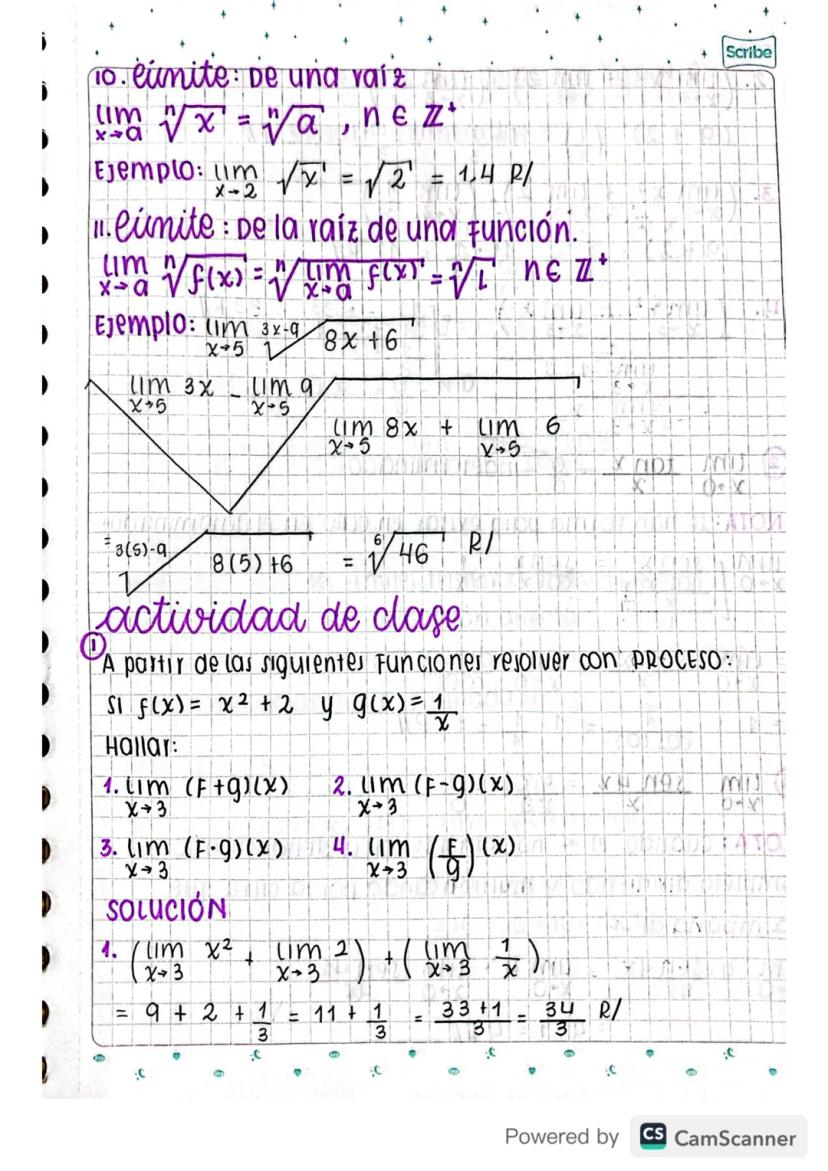 Scribe
10. Límite: De una raíz
lim x→a ⁿ√x = ⁿ√a , n ∈ ℤ⁺
Ejemplo: lim x→2 √x = √2 = 1,4 R/
11. Límite: De la raíz de una función.
lim x→a ⁿ√f(x) = ⁿ√lim x→a f(x) = ⁿ√L n ∈ ℤ⁺
Ejemplo: lim x→5 ³ˣ⁻⁹√8x+6
lim x→5 3x - lim x→5 9 √ lim x→5 8x + lim x→5 6
= 3(5)-9 √ 8(5)+6 = ⁶√46 R/
actividad de clase
① A partir de las siguientes funciones resolver con PROCESO:
Si f(x) = x² + 2 y g(x) = 1/x
Hallar:
1. lim x→3 (F+g)(x) 2. lim x→3 (F-g)(x)
3. lim x→3 (F·g)(x) 4. lim x→3 (F/g)(x)
SOLUCIÓN
1. (lim x→3 x² + lim x→3 2) + (lim x→3 1/x)
= 9 + 2 + 1/3 = 11 + 1/3 = 33+1/3 = 34/3 R/
Powered by CS CamScanner